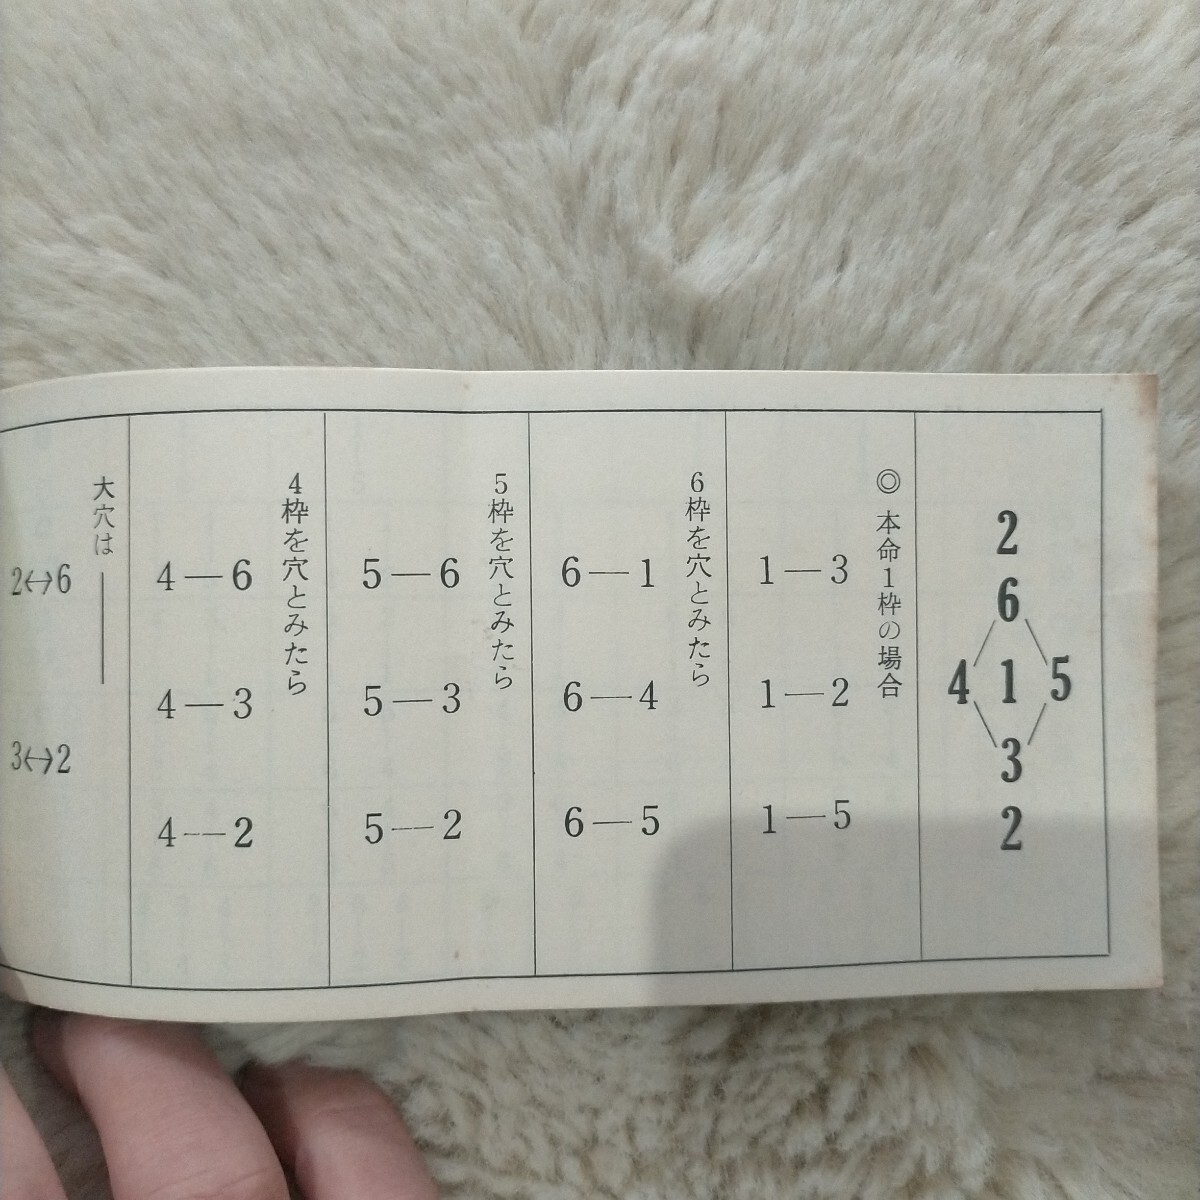 2
6
4 1 5
3
2
◎ 本命1枠の場合
1―3
1―2
1―5
6枠を穴とみたら
6―1
6―4
6―5
5枠を穴とみたら
5―6
5―3
5―2
4枠を穴とみたら
4―6
4―3
4―2
大穴は――
2↔6
3↔2